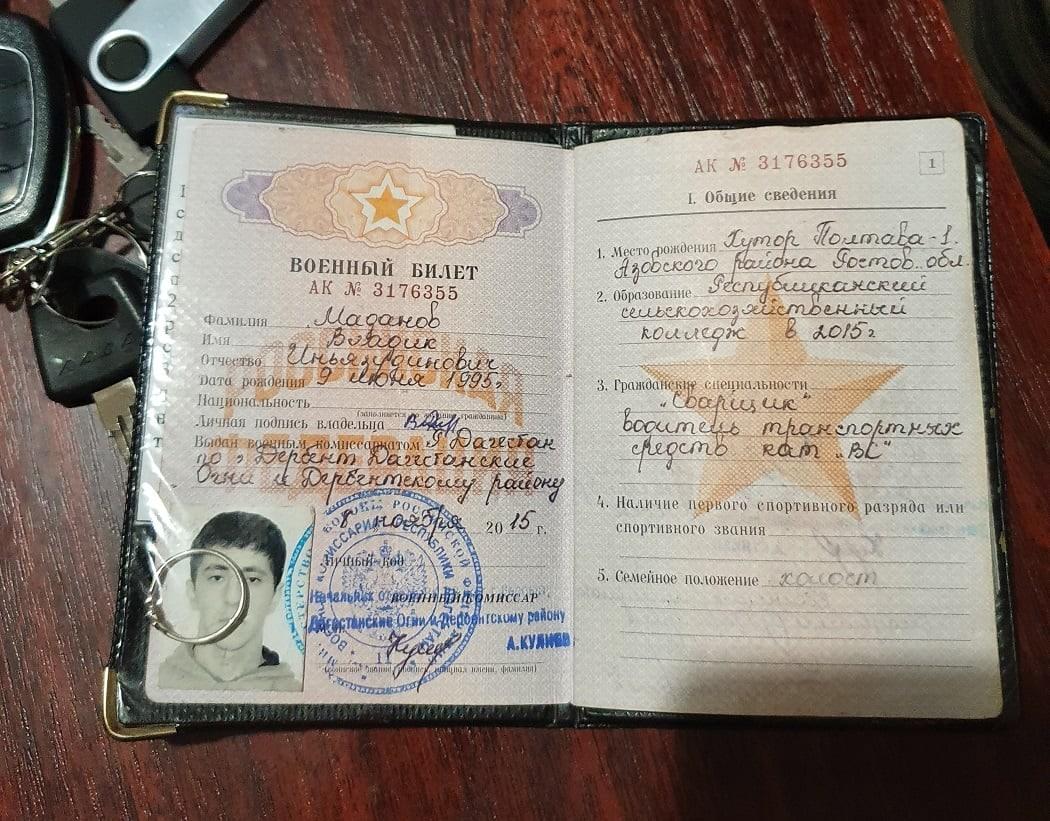 ВОЕННЫЙ БИЛЕТ
АК № 3176355
Фамилия Маданов
Имя Владик
Отчество Иньязудинович
Дата рождения 9 июня 1995г
Национальность
Личная подпись владельца
Выдан военным комиссариатом Р. Дагестан
по г. Дербент Дагестанские
Огни и Дербентскому району
8 ноября 2015 г.
Личный код
ВОЕННЫЙ КОМИССАР
Дагестанские Огни и Дербентскому району
А.КУЛИЕВ
АК № 3176355
1
I. Общие сведения
1. Место рождения Хутор Полтава-1.
Азовского района Ростов. обл.
2. Образование Республиканский
сельскохозяйственный
колледж в 2015г
3. Гражданские специальности
„Сварщик“
водитель транспортных
средств кат „ВС“
4. Наличие первого спортивного разряда или
спортивного звания
5. Семейное положение холост